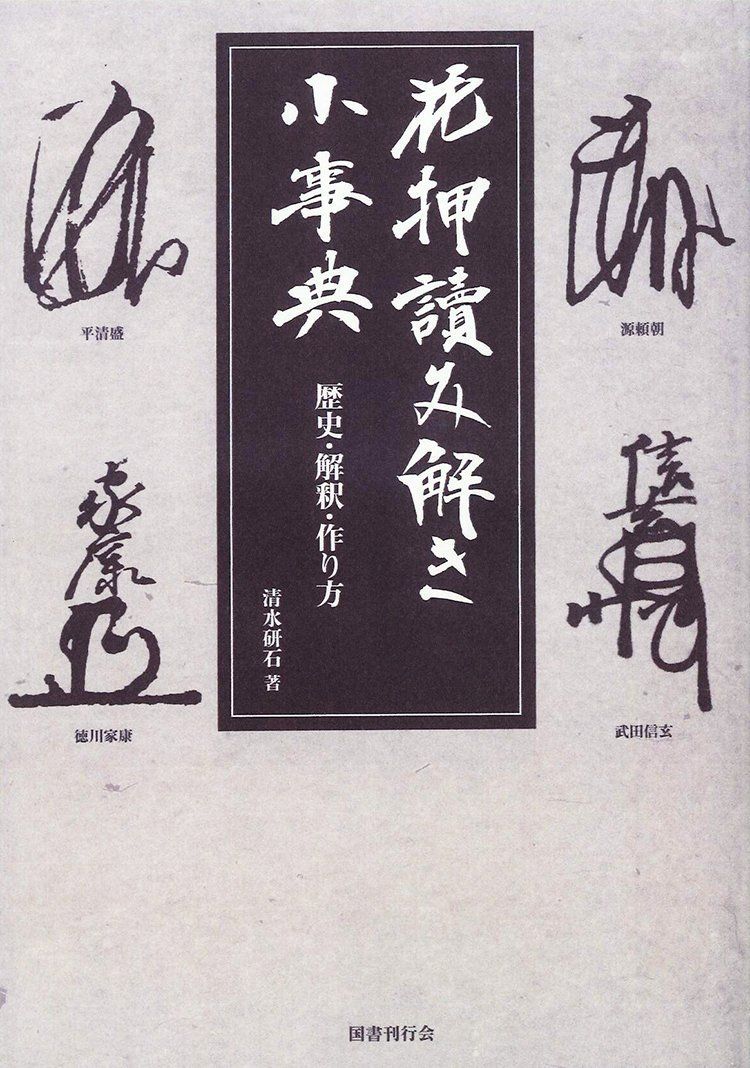 花押讀み解き
小事典
歴史・解釈・作り方
清水研石 著
源頼朝
平清盛
信玄
武田信玄
家康
徳川家康
国書刊行会